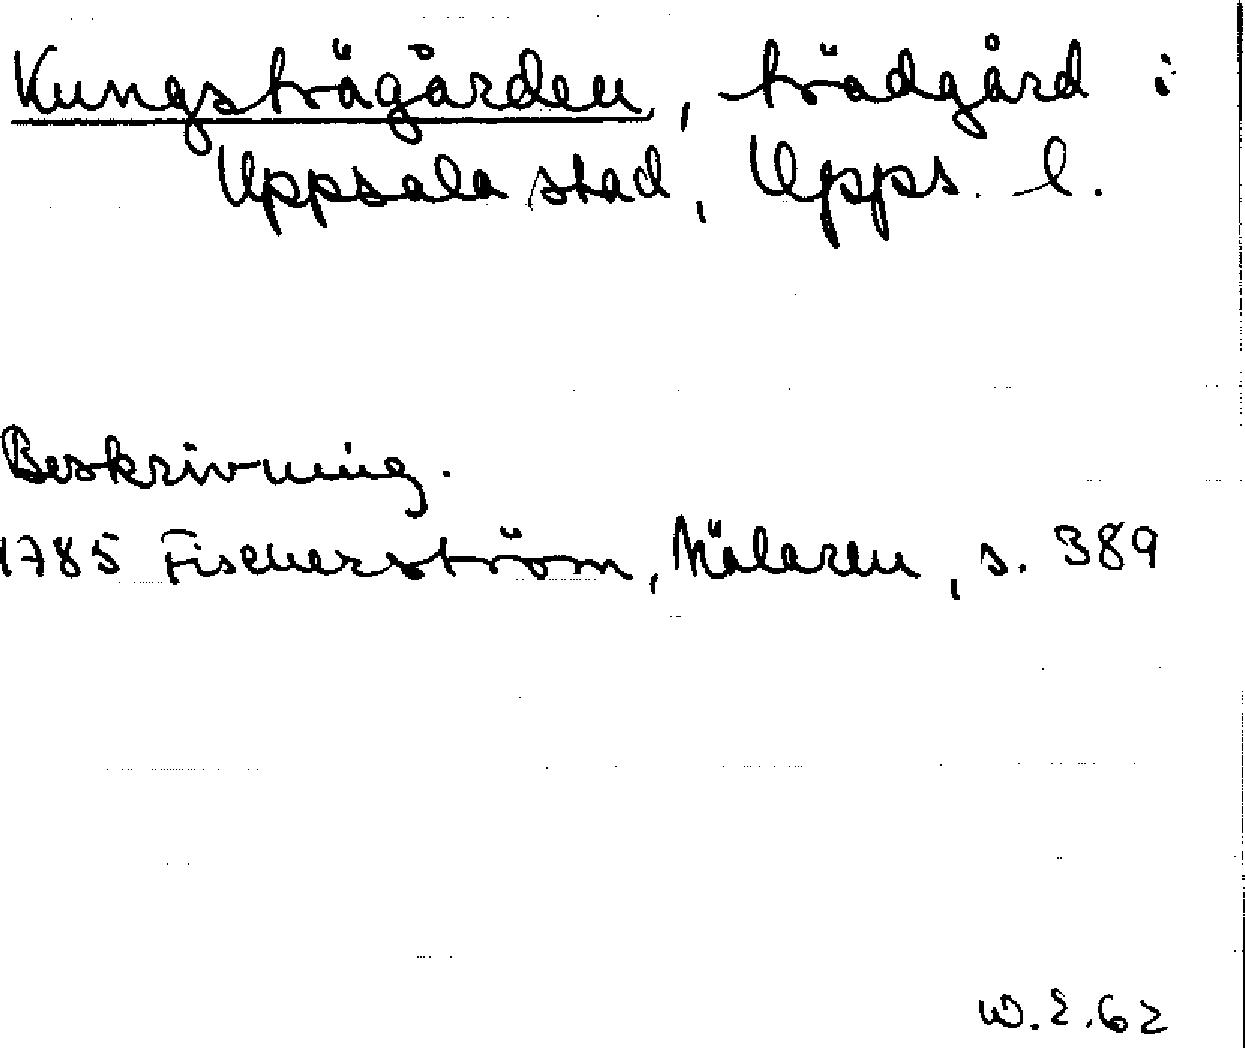 Kungsträgården, trädgård i
Uppsala stad, Upps. l.
Beskrivning.
1785 Fischerström, Mälaren, s. 389
W.E.62